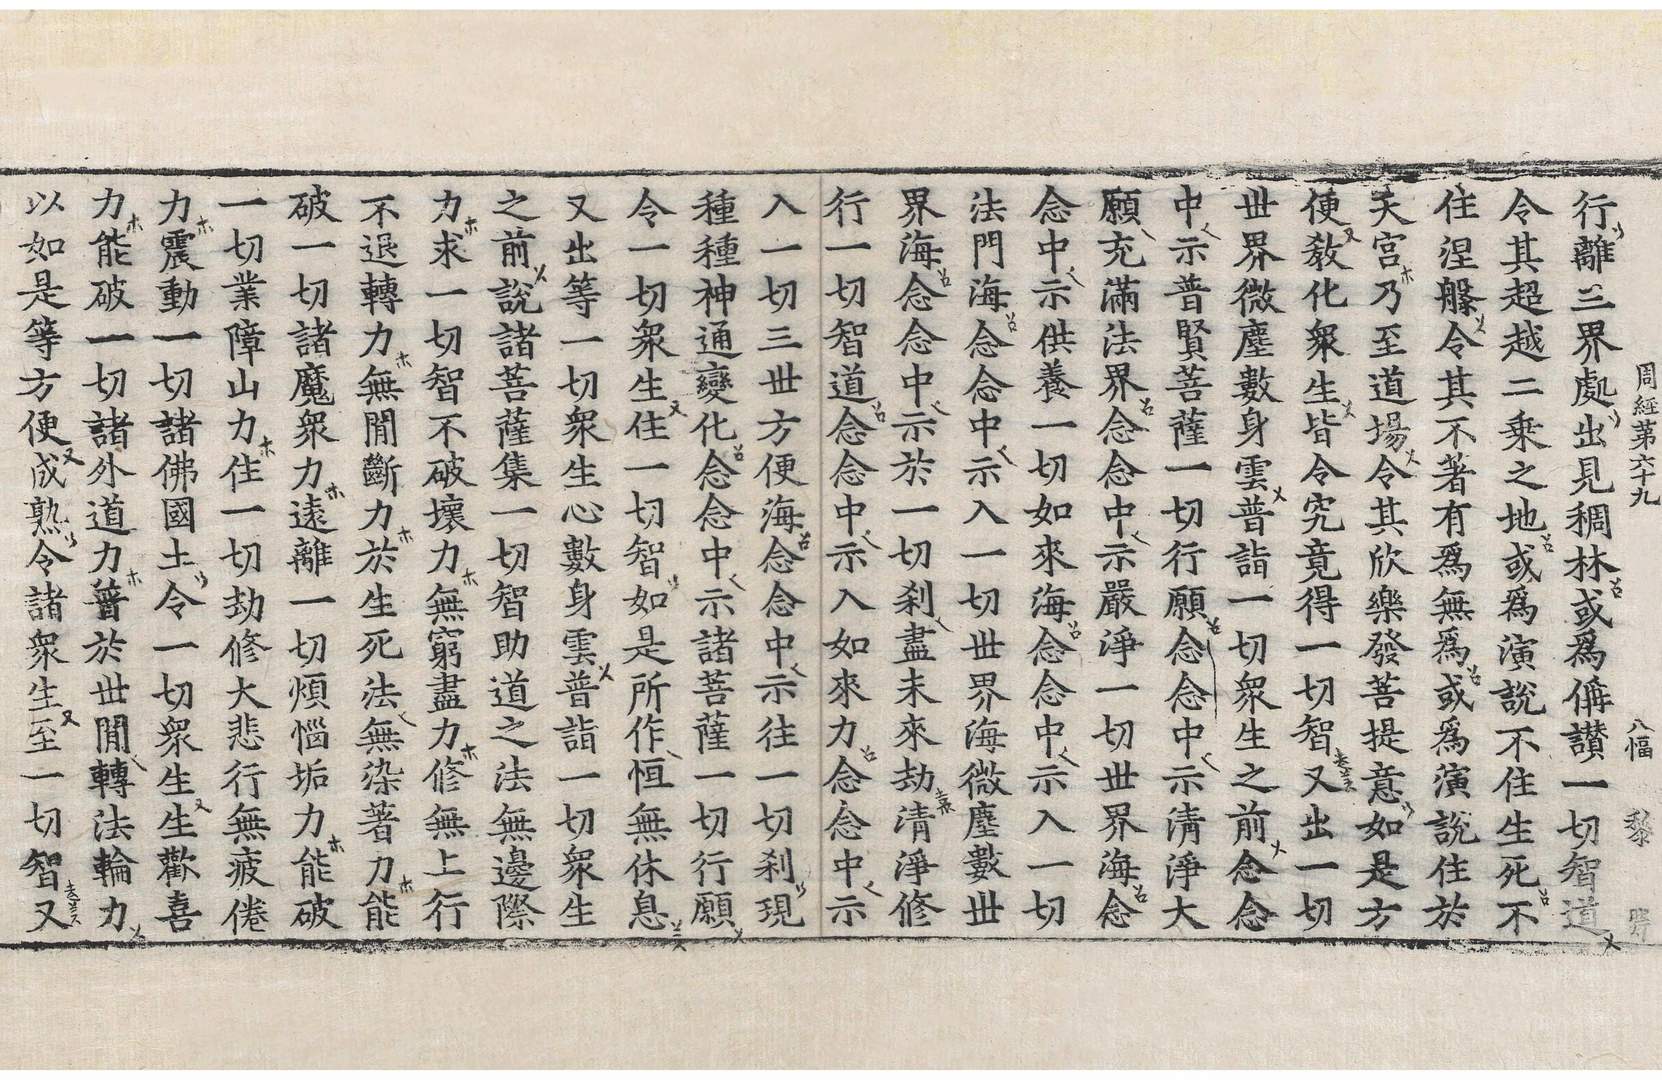 周經第六十九 八幅 黎
行離三界處出見稠林或爲稱讃一切智道
令其超越二乘之地或爲演說不住生死不
住涅槃令其不著有爲無爲或爲演說住於
天宮乃至道場令其欣樂發菩提意如是方
便敎化衆生皆令究竟得一切智又出一切
世界微塵數身雲普詣一切衆生之前念念
中示普賢菩薩一切行願念念中示淸淨大
願充滿法界念念中示嚴淨一切世界海念
念中示供養一切如來海念念中示入一切
法門海念念中示入一切世界海微塵數世
界海念念中示於一切刹盡未來劫淸淨修
行一切智道念念中示入如來力念念中示
入一切三世方便海念念中示往一切刹現
種種神通變化念念中示諸菩薩一切行願
令一切衆生住一切智如是所作恒無休息
又出等一切衆生心數身雲普詣一切衆生
之前說諸菩薩集一切智助道之法無邊際
力求一切智不破壞力無窮盡力修無上行
不退轉力無閒斷力於生死法無染著力能
破一切諸魔衆力遠離一切煩惱垢力能破
一切業障山力住一切劫修大悲行無疲倦
力震動一切諸佛國土令一切衆生生歡喜
力能破一切諸外道力普於世閒轉法輪力
以如是等方便成熟令諸衆生至一切智又